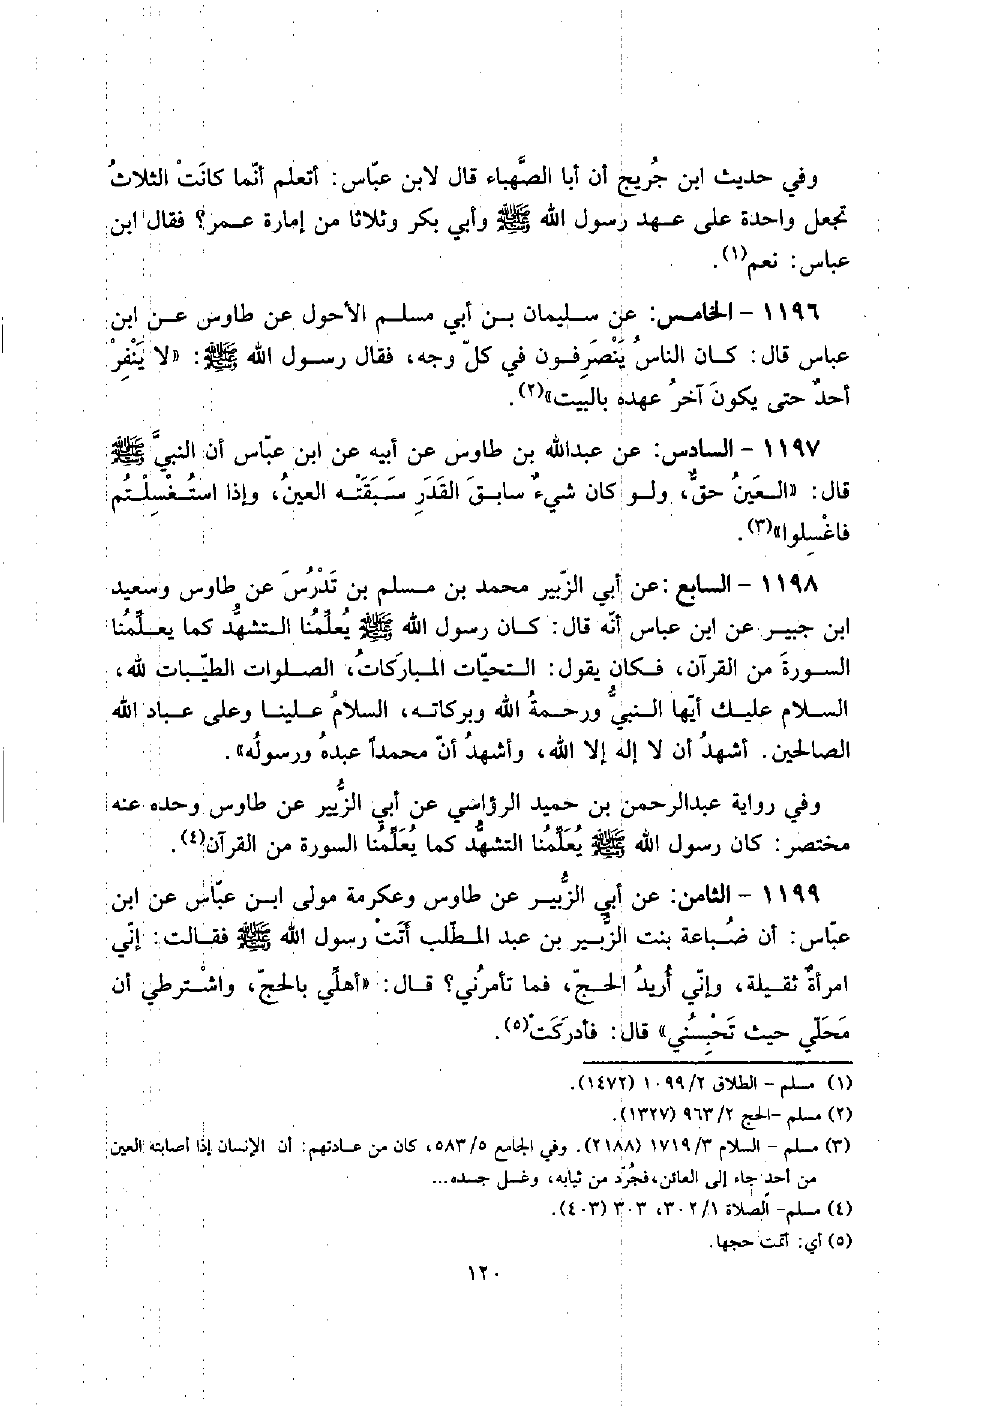 وفي حديث ابن جُريج أن أبا الصَّهباء قال لابن عبّاس: أتعلم أنّما كانَتْ الثلاثُ
تجعل واحدة على عهد رسول الله ﷺ وأبي بكر وثلاثا من إمارة عمر؟ فقال ابن
عباس: نعم(١).
١١٩٦ - الخامس: عن سليمان بن أبي مسلم الأحول عن طاوس عن ابن
عباس قال: كان الناسُ يَنْصَرِفون في كلّ وجه، فقال رسول الله ﷺ: «لا يَنْفِرْ
أحدٌ حتى يكونَ آخرُ عهده بالبيت»(٢).
١١٩٧ - السادس: عن عبدالله بن طاوس عن أبيه عن ابن عبّاس أن النبيَّ ﷺ
قال: «العَينُ حقٌّ، ولو كان شيءٌ سابقَ القَدَرِ سَبَقَتْه العينُ، وإذا استُغْسِلْتُم
فاغْسِلوا»(٣).
١١٩٨ - السابع: عن أبي الزّبير محمد بن مسلم بن تَدْرُسَ عن طاوس وسعيد
ابن جبير عن ابن عباس أنّه قال: كان رسول الله ﷺ يُعلِّمُنا التشهُّد كما يعلِّمُنا
السورةَ من القرآن، فكان يقول: التحيّات المباركاتُ، الصلوات الطيّبات لله،
السلام عليك أيّها النبيُّ ورحمةُ الله وبركاته، السلامُ علينا وعلى عباد الله
الصالحين. أشهدُ أن لا إله إلا الله، وأشهدُ أنّ محمداً عبدُه ورسولُه».
وفي رواية عبدالرحمن بن حميد الرؤاسي عن أبي الزُّبير عن طاوس وحده عنه
مختصر: كان رسول الله ﷺ يُعَلِّمُنا التشهُّد كما يُعَلِّمُنا السورة من القرآن(٤).
١١٩٩ - الثامن: عن أبي الزُّبير عن طاوس وعكرمة مولى ابن عبّاس عن ابن
عبّاس: أن ضُباعة بنت الزُّبير بن عبد المطّلب أتَتْ رسول الله ﷺ فقالت: إنّي
امرأةٌ ثقيلة، وإنّي أُريدُ الحجّ، فما تأمرُني؟ قال: «أهلِّي بالحجّ، واشْترطي أن
مَحَلّي حيث تَحْبِسُني» قال: فأدرَكَتْ(٥).
(١) مسلم - الطلاق ٢/ ١٠٩٩ (١٤٧٢).
(٢) مسلم -الحج ٢/ ٩٦٣ (١٣٢٧).
(٣) مسلم - السلام ٣/ ١٧١٩ (٢١٨٨). وفي الجامع ٥/ ٥٨٣، كان من عادتهم: أن الإنسان إذا أصابته العين
من أحدٍ جاء إلى العائن، فجُرّد من ثيابه، وغسل جسده...
(٤) مسلم- الصّلاة ١/ ٣٠٢، ٣٠٣ (٤٠٣).
(٥) أي: أتمّت حجها.
١٢٠